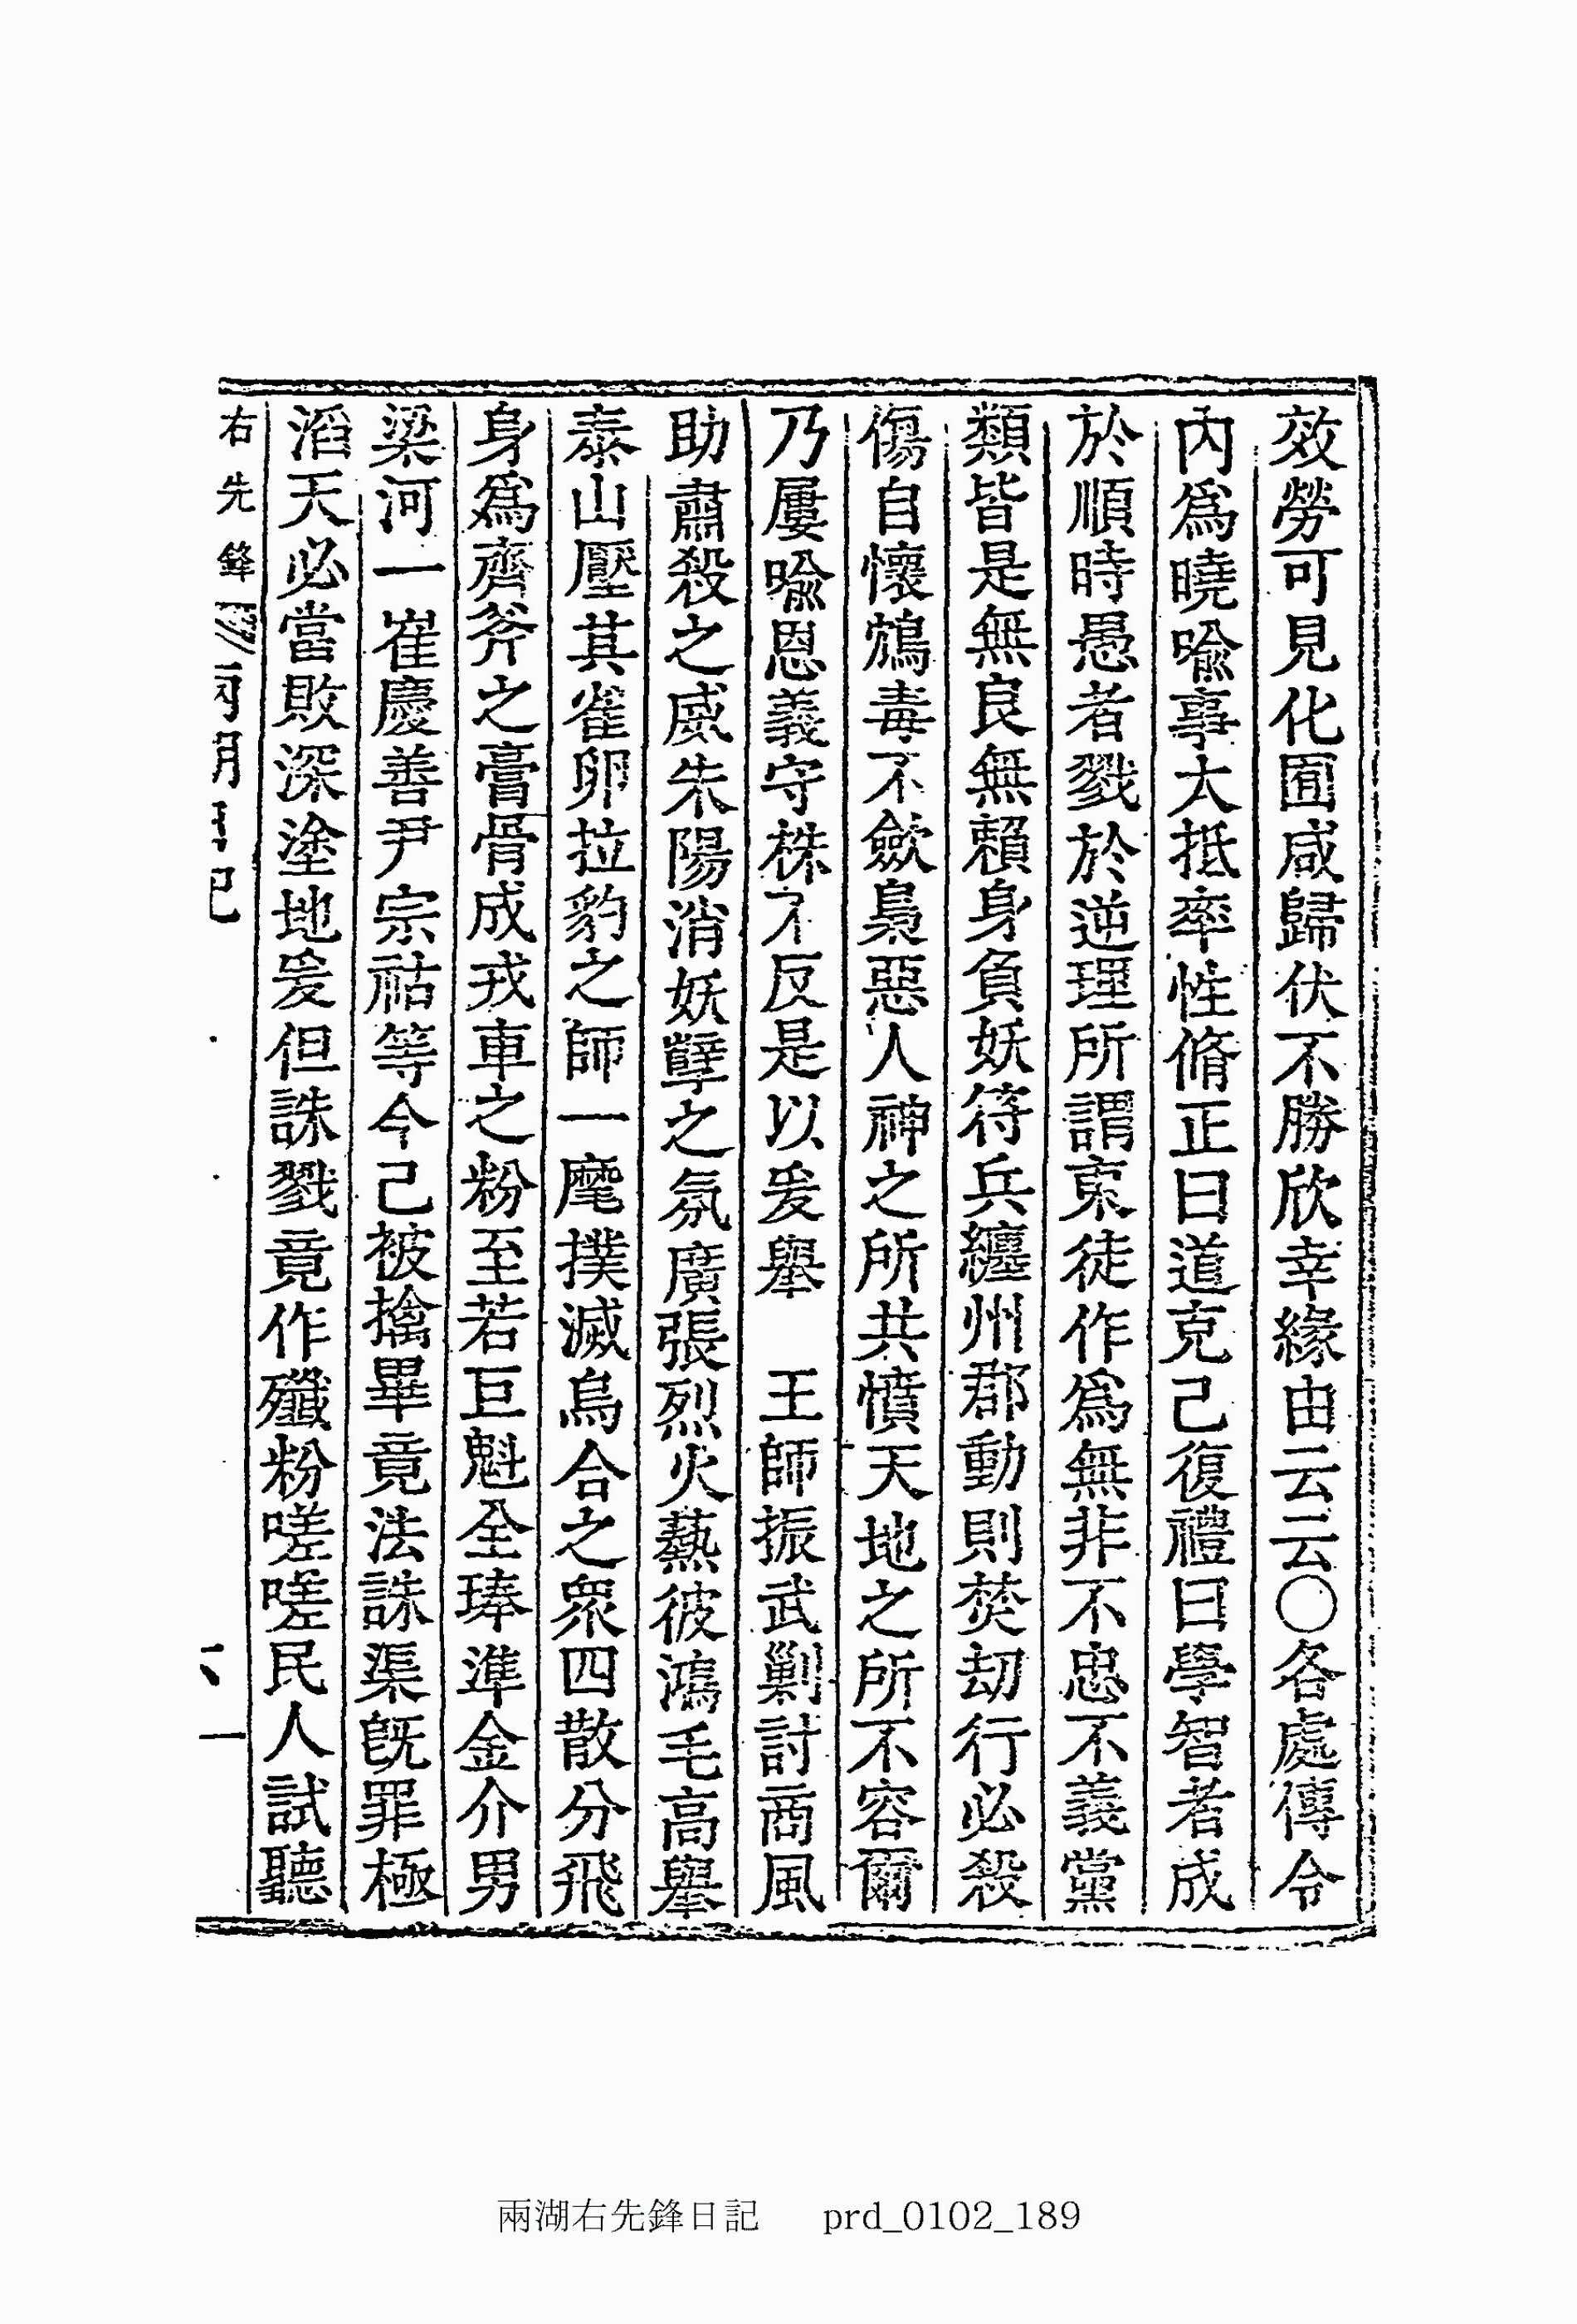 效勞可見化囿咸歸伏不勝欣幸緣由云云○各處傳令
內爲曉喩事大抵率性脩正曰道克己復禮曰學智者成
於順時愚者戮於逆理所謂東徒作爲無非不忠不義黨
類皆是無良無賴身負妖符兵纏州郡動則焚刧行必殺
傷自懷鴆毒不歛梟惡人神之所共憤天地之所不容爾
乃屢喩恩義守株不反是以爰擧 王師振武剿討商風
助肅殺之威朱陽消妖孼之氛廣張烈火爇彼鴻毛高擧
泰山壓其雀卵拉豹之師一麾撲滅烏合之衆四散分飛
身爲齊斧之膏骨成戎車之粉至若巨魁全琫準金介男
梁河一崔慶善尹宗祜等今己被擒畢竟法誅渠旣罪極
滔天必當敗深塗地爰但誅戮竟作殲粉嗟嗟民人試聽
右先鋒 兩湖日記
兩湖右先鋒日記 prd_0102_189